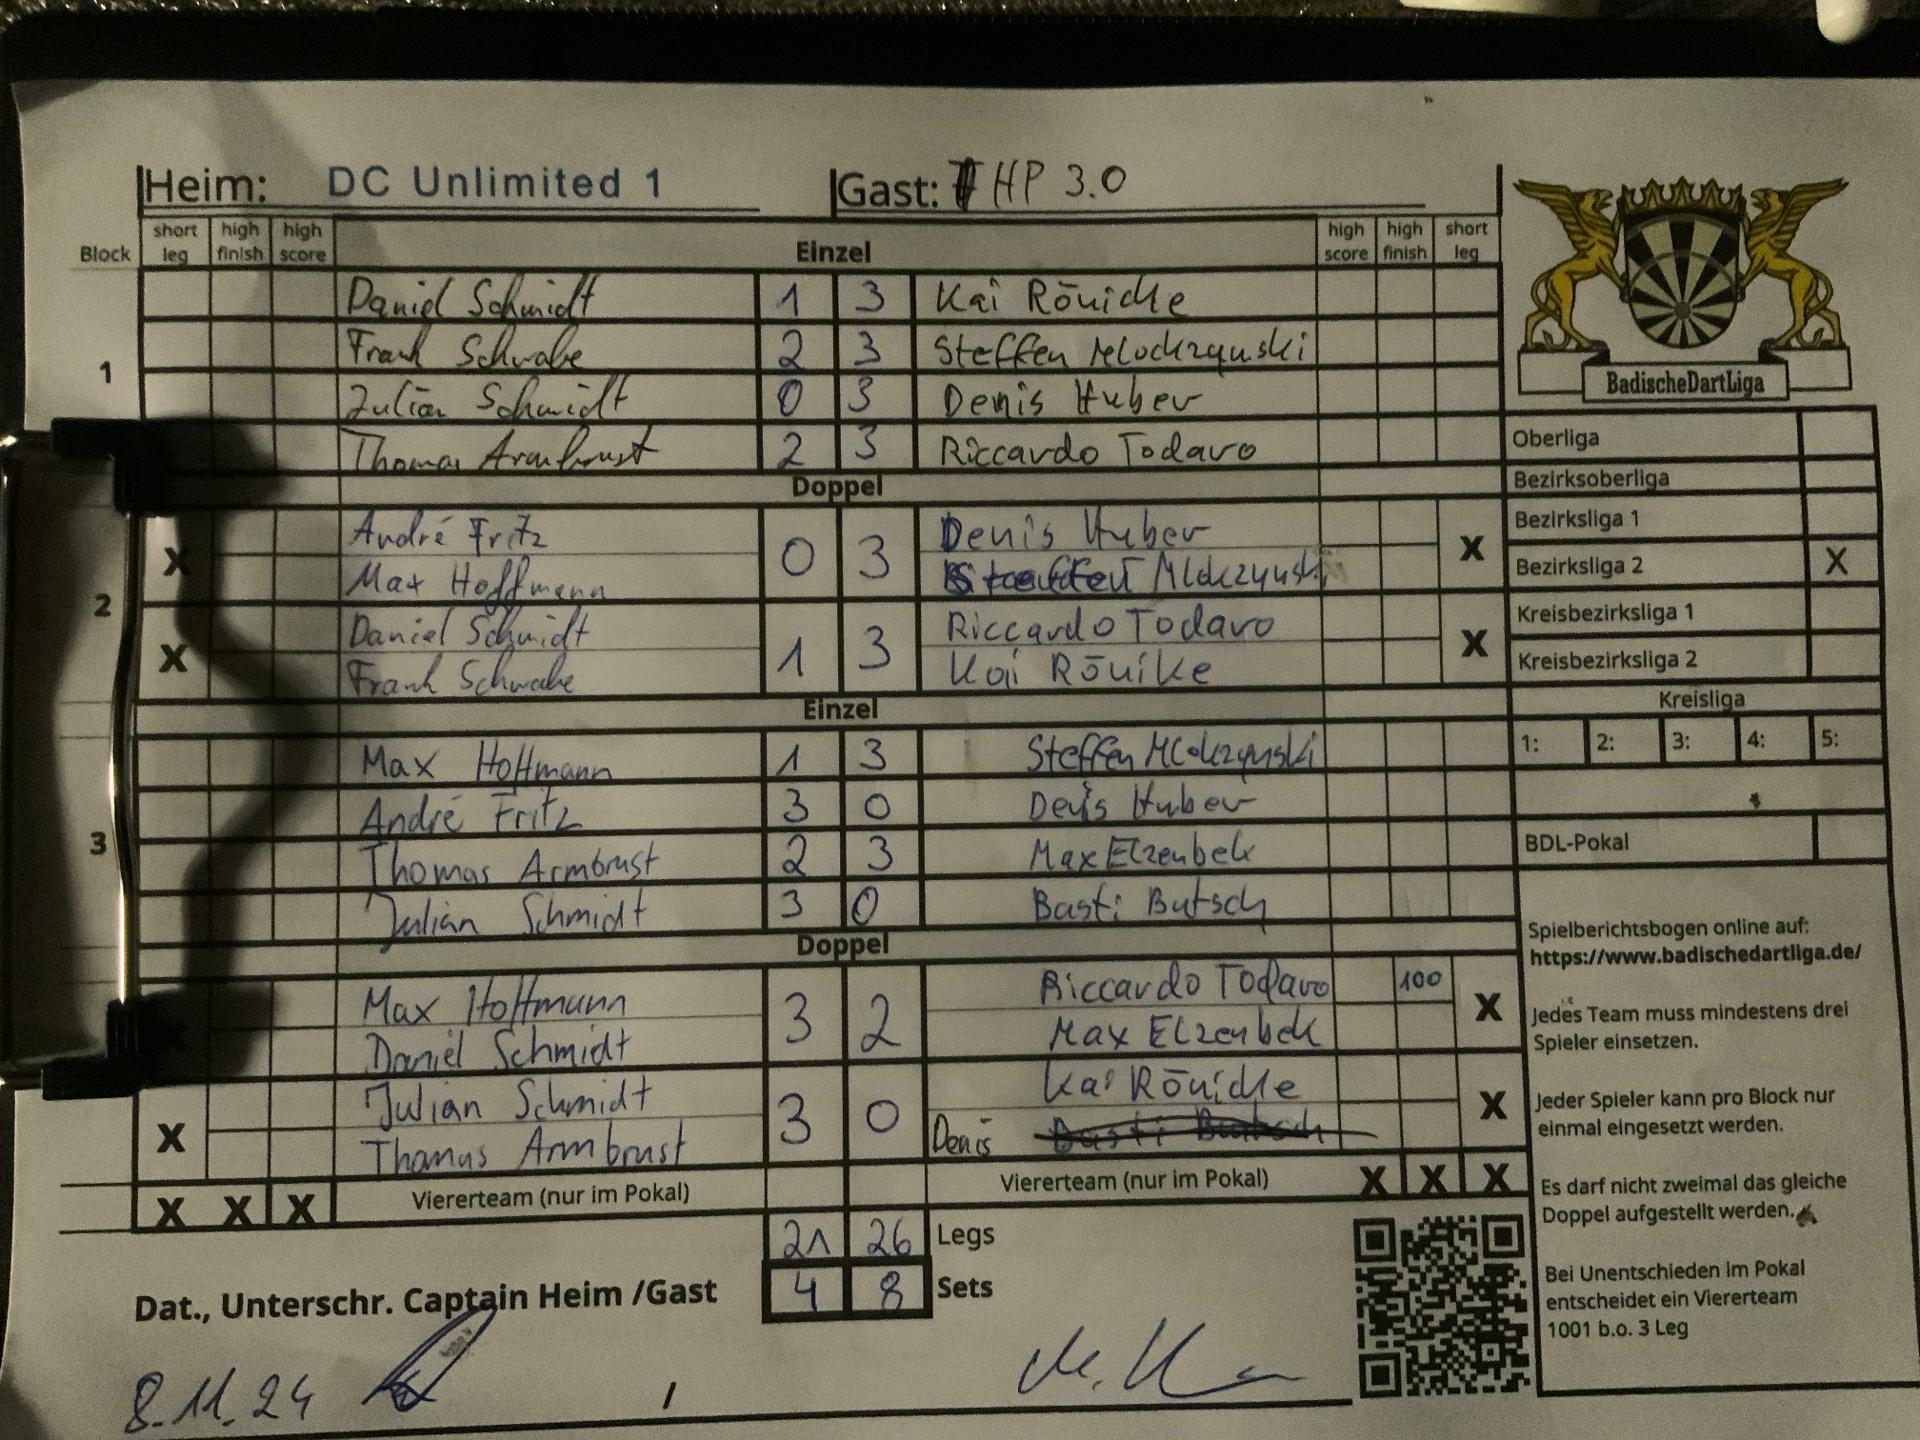 Heim: DC Unlimited 1 Gast: HP 3.0
Block short leg high finish high score Einzel high score high finish short leg
1
Daniel Schmidt 1 3 Kai Rönicke
Frank Schwabe 2 3 Steffen Mloczynski
Julian Schmidt 0 3 Denis Huber
Thomas Armbrust 2 3 Riccardo Todaro
Doppel
2
X André Fritz 0 3 Denis Huber X
Max Hoffmann Steffen Mloczynski
X Daniel Schmidt 1 3 Riccardo Todaro X
Frank Schwabe Kai Rönike
Einzel
3
Max Hoffmann 1 3 Steffen Mloczynski
André Fritz 3 0 Denis Huber
Thomas Armbrust 2 3 Max Elzenbek
Julian Schmidt 3 0 Basti Butsch
Doppel
Max Hoffmann 3 2 Riccardo Todaro 100 X
Daniel Schmidt Max Elzenbek
X Julian Schmidt 3 0 Kai Rönicke X
Thomas Armbrust Denis Basti Butsch
X X X Viererteam (nur im Pokal) Viererteam (nur im Pokal) X X X
21 26 Legs
4 8 Sets
Dat., Unterschr. Captain Heim /Gast
8.11.24 /
BadischeDartLiga
Oberliga
Bezirksoberliga
Bezirksliga 1
Bezirksliga 2 X
Kreisbezirksliga 1
Kreisbezirksliga 2
Kreisliga
1: 2: 3: 4: 5:
BDL-Pokal
Spielberichtsbogen online auf:
https://www.badischedartliga.de/
Jedes Team muss mindestens drei
Spieler einsetzen.
Jeder Spieler kann pro Block nur
einmal eingesetzt werden.
Es darf nicht zweimal das gleiche
Doppel aufgestellt werden.
Bei Unentschieden im Pokal
entscheidet ein Viererteam
1001 b.o. 3 Leg